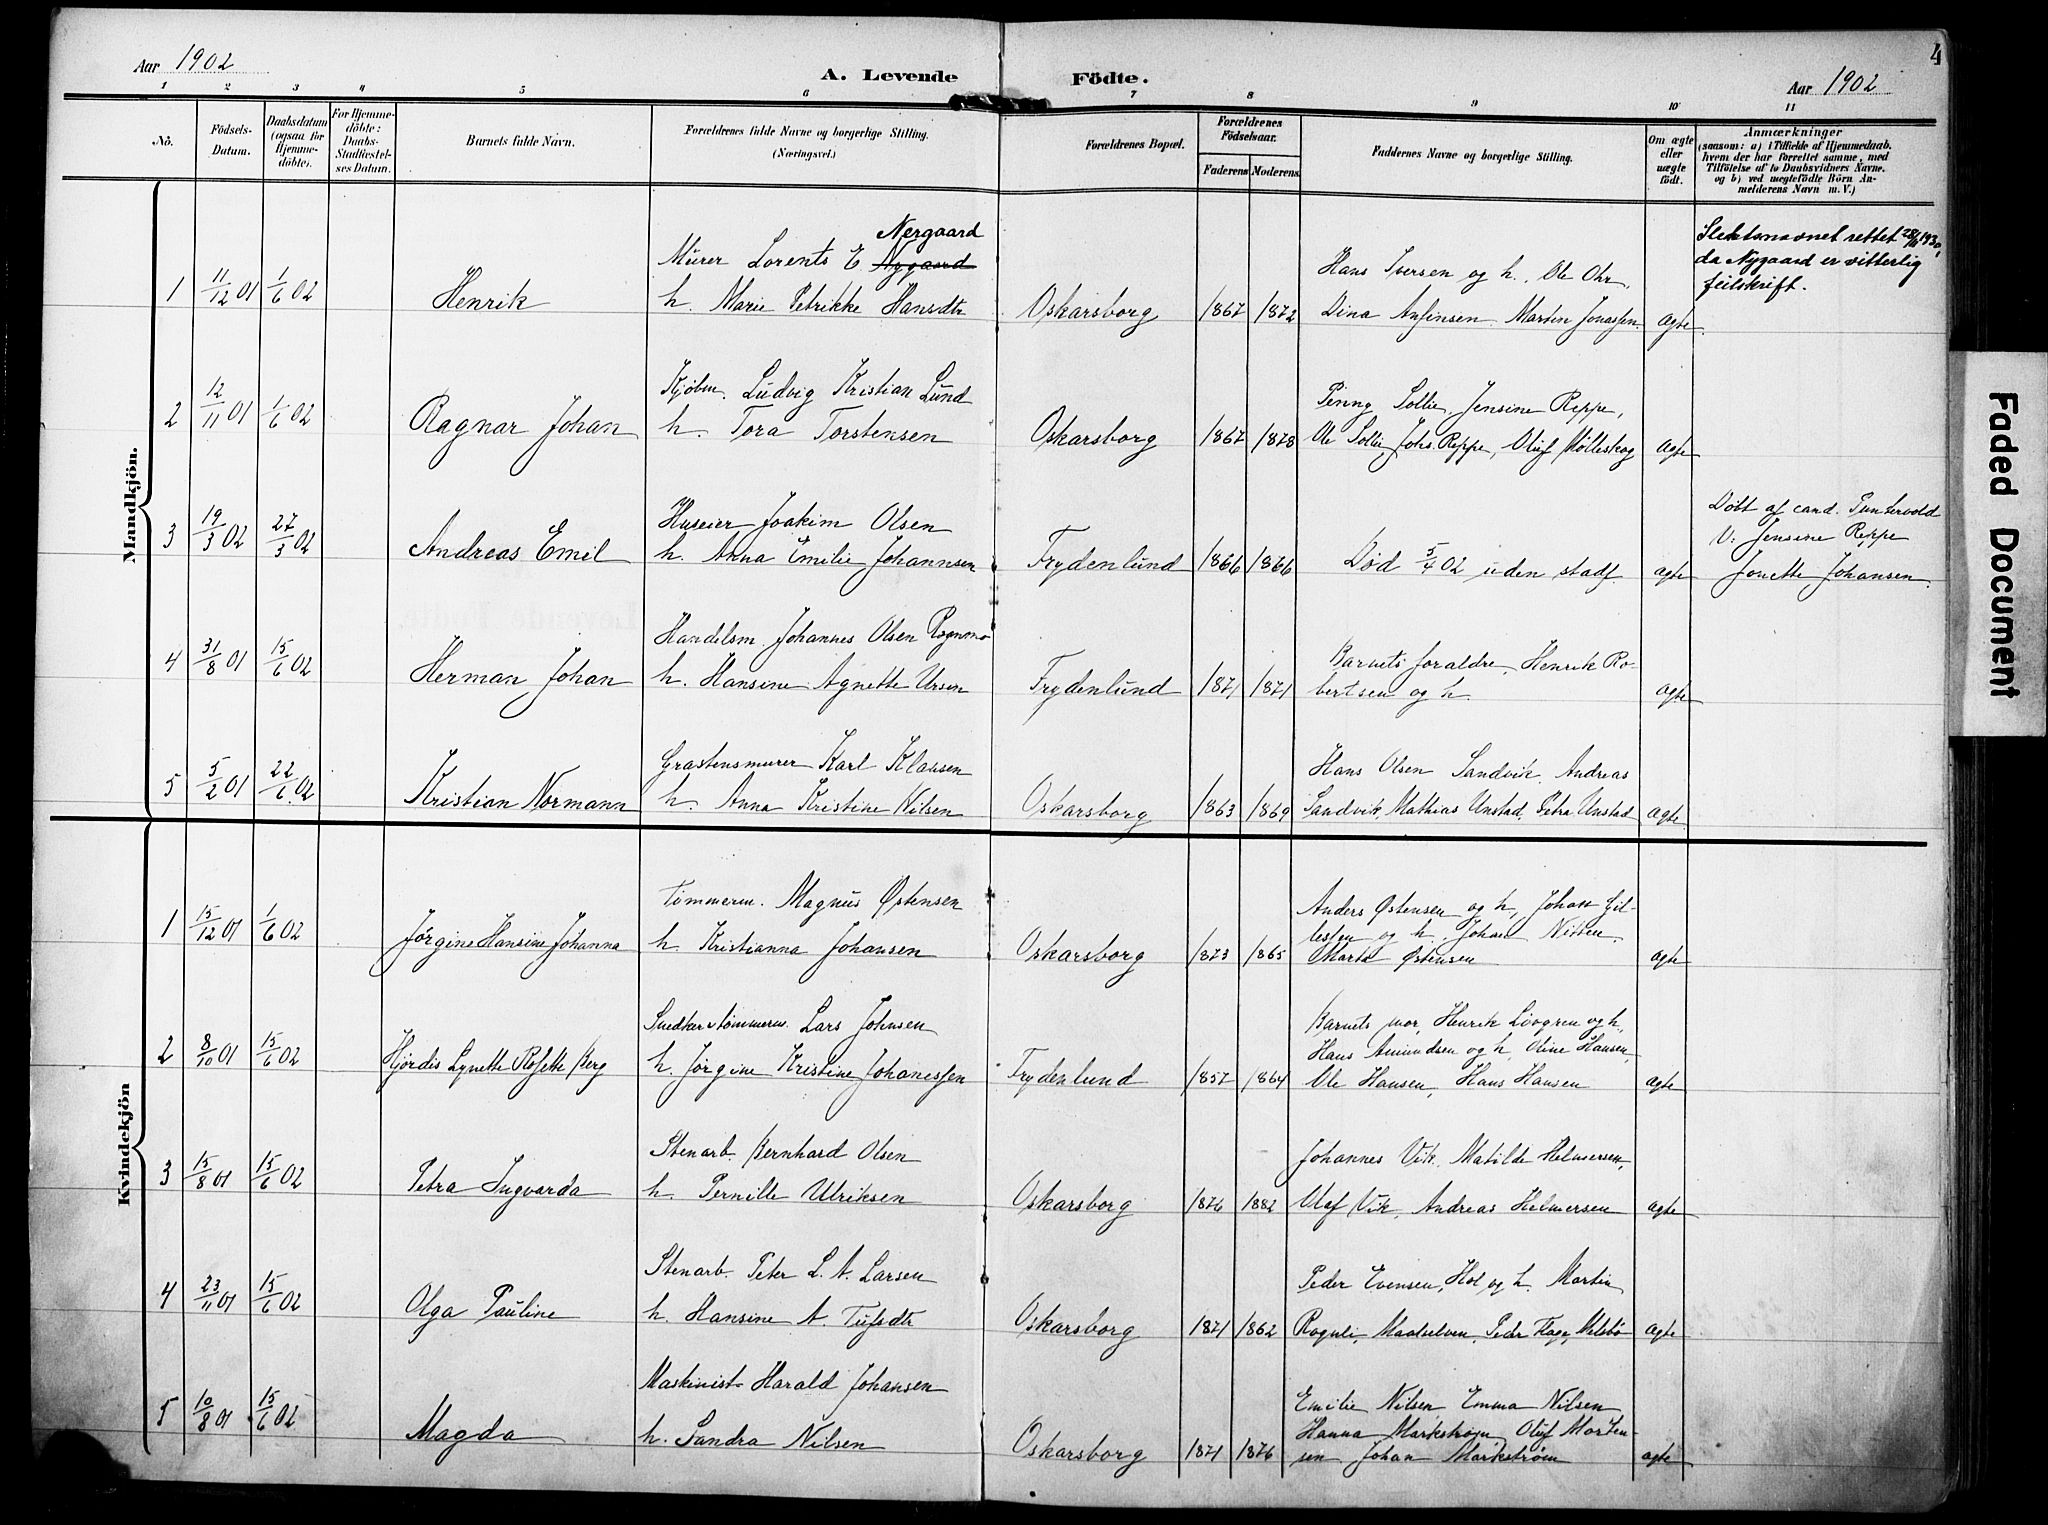 4
Aar 1902
A. Levende Födte.
Aar 1902
1 2 3 4 5 6 7 8 9 10 11
No.
Födsels-Datum.
Daabsdatum (ogsaa for Hjemmedöbte).
For Hjemmedöbte: Daabs-Stadfæstelses Datum.
Barnets fulde Navn.
Forældrenes fulde Navne og borgerlige Stilling. (Næringsvei.)
Forældrenes Bopæl.
Forældrenes Födselsaar.
Faderens Moderens
Faddernes Navne og borgerlige Stilling.
Om ægte eller uægte födt.
Anmærkninger
(saasom: a) i Tilfælde af Hjemmedaab, hvem der har forrettet samme, med Tilföielse af to Daabsvidners Navne, og b) ved uegtefödte Börn Anmelderens Navn m. V.)
Mandkjön.
1 11/12 01 1/6 02 Henrik
Murer Lorents E Nygaard Nergaard
h. Marie Petrikke Hansdtr
Oskarsborg 1867 1872
Hans Iversen og h. Ole Ohr.
Dina Anfinsen. Martin Jonassen.
ægte
Slektsnavnet rettet 1930,
da Nygaard er vitterlig
feilskrift.
2 12/11 01 1/6 02 Ragnar Johan
Kjøbm. Ludvig Kristian Lund
h. Tora Torstensen
Oskarsborg 1867 1878
Penny Sollie, Jensine Reppe,
Ole Sollie, Johs. Reppe, Oluf Mølleskog
ægte
3 19/3 02 27/3 02 Andreas Emil
Huseier Joakim Olsen
h. Anna Emilie Johannsen
Frydenlund 1866 1866
Død 5/4 02 uden stadf.
ægte
Døbt af cand. Puntervold
V: Jensine Reppe
Jonette Johansen.
4 31/8 01 15/6 02 Herman Johan
Handelsm. Johannes Olsen Rognmo
h. Hansine Agnette Ursin
Frydenlund 1871 1871
Barnets foraldre, Henrik Ro-
bertsen og h.
ægte
5 5/2 01 22/6 02 Kristian Normann
Graastensmurer Karl Klausen
h. Anna Kristine Nilsen
Oskarsborg 1863 1869
Hans Olsen Sandvik, Andreas
Sandvik, Mathias Unstad, Petra Unstad
ægte
Kvindekjön
1 15/12 01 1/6 02 Jørgine Hansine Johanna
Tømmerm. Magnus Østensen
h. Kristianna Johansen
Oskarsborg 1873 1865
Anders Østensen og h, Johan
og h. Johan
Marta Østensen
ægte
2 8/10 01 15/6 02 Hjördis Lynette Rosette Berg
Snedker & tømmerm. Lars Johnsen
h. Jørgine Kristine Johanessen
Frydenlund 1857 1864
Barnets mor, Henrik Løvgren og h,
Hans Amundsen og h, Oline Hansen,
Ole Hansen, Hans Hansen
ægte
3 15/8 01 15/6 02 Petra Ingvarda
Stenarb. Bernhard Olsen
h. Pernille Ulriksen
Oskarsborg 1876 1882
Johannes Vik, Matilde Helmersen,
Olaf Vik, Andreas Helmersen
ægte
4 23/11 01 15/6 02 Olga Pauline
Stenarb. Peter L. A. Larsen
h. Hansine A.
Oskarsborg 1871 1862
Peder Evensen, Hol og h. Martin
Rognli, Maalselven, Peder Flage, Melsbø
ægte
5 10/8 01 15/6 02 Magda
Maskinist Harald Johansen
h. Sandra Nilsen
Oskarsborg 1871 1876
Emilie Nilsen Emma Nilsen
Hanna Markstrøm, Oluf Morten-
sen Johan Markstrøm
ægte
Faded Document